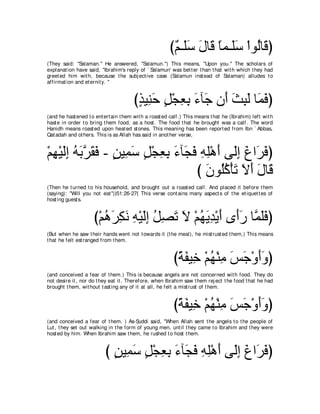 (قَالُواْ سَلَـمًا قَالَ سَلَـمٌ)
(They said: "Salaman." He answered, "Salamun.") This means, "Upon you." The scholars of
explanation have said, "Ibrahim's reply of `Salamun' was better than that with which they had
greeted him with, because the subjective case (Salamun instead of Salaman) alludes to
affirmation and eternity. "
(فَمَا لَبِثَ أَن جَآءَ بِعِجْلٍ حَنِيذٍ)
(and he hastened to entertain them with a roasted calf.) This means that he (Ibrahim) left with
haste in order to bring them food, as a host. The food that he brought was a calf. The word
Hanidh means roasted upon heated stones. This meaning has been reported from Ibn `Abbas,
Qatadah and others. This is as Allah has said in another verse,
(فَرَاغَ إِلَى أَهْلِهِ فَجَآءَ بِعِجْلٍ سَمِينٍ - فَقَرَّبَهُ إِلَيْهِمْ
قَالَ أَلاَ تَأْكُلُونَ )
(Then he turned to his household, and brought out a roasted calf. And placed it before them
(saying): "Will you not eat")[51:26-27] This verse contains many aspects of the etiquettes of
hosting guests.
(فَلَمَّا رَأَى أَيْدِيَهُمْ لاَ تَصِلُ إِلَيْهِ نَكِرَهُمْ)
(But when he saw their hands went not towards it (the meal), he mistrusted them,) This means
that he felt estranged from them.
(وَأَوْجَسَ مِنْهُمْ خِيفَةً)
(and conceived a fear of them.) This is because angels are not concerned with food. They do
not desire it, nor do they eat it. Therefore, when Ibrahim saw them reject the food that he had
brought them, without tasting any of it at all, he felt a mistrust of them.
(وَأَوْجَسَ مِنْهُمْ خِيفَةً)
(and conceived a fear of them. ) As-Suddi said, "When Allah sent the angels to the people of
Lut, they set out walking in the form of young men, until they came to Ibrahim and they were
hosted by him. When Ibrahim saw them, he rushed to host them.
(فَرَاغَ إِلَى أَهْلِهِ فَجَآءَ بِعِجْلٍ سَمِينٍ )